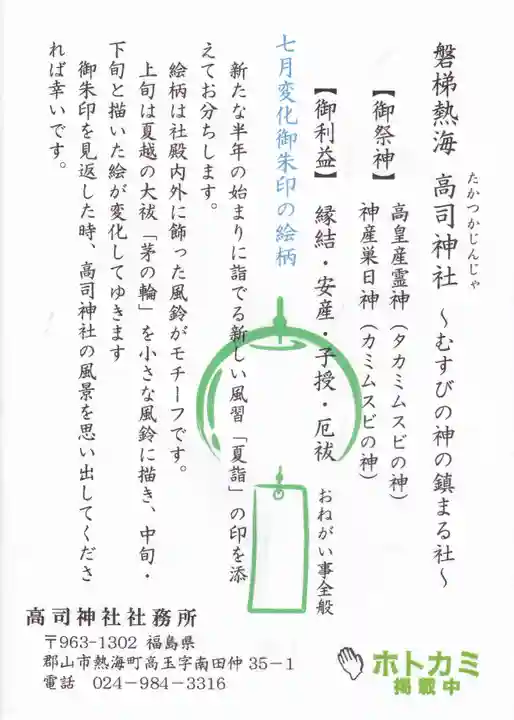 磐梯熱海 高司神社 ～むすびの神の鎮まる社～
たかつかじんじゃ
【御祭神】 高皇産霊神（タカミムスビの神）
神産巣日神（カミムスビの神）
【御利益】 縁結・安産・子授・厄祓
おねがい事全般
七月変化御朱印の絵柄
新たな半年の始まりに詣でる新しい風習「夏詣」の印を添
えてお分ちします。
絵柄は社殿内外に飾った風鈴がモチーフです。
上旬は夏越の大祓「茅の輪」を小さな風鈴に描き、中旬・
下旬と描いた絵が変化してゆきます
御朱印を見返した時、高司神社の風景を思い出してくださ
れば幸いです。
高司神社社務所
〒963-1302 福島県
郡山市熱海町高玉字南田仲 35－1
電話 024－984－3316
ホトカミ
掲載中